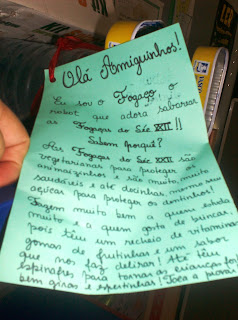 Olá Amiguinhos!
Eu sou o Fogaço o
robot que adora saborear
as Fogaças do Séc XXII!!
Sabem porquê?
As Fogaças do Séc XXII são
vegetarianas para proteger os
animaizinhos e são muito, muito
saudáveis e até docinhas, mesmo sem
açúcar para proteger os dentinhos!
Fazem muito bem a quem estuda
muito e a quem gosta de brincar,
pois têm um recheio de vitaminas
gomas de frutinhas e um sabor
que nos faz delirar! Até têm
espinafres para tornar as crianças
bem giras e espertinhas! Toca a provar!